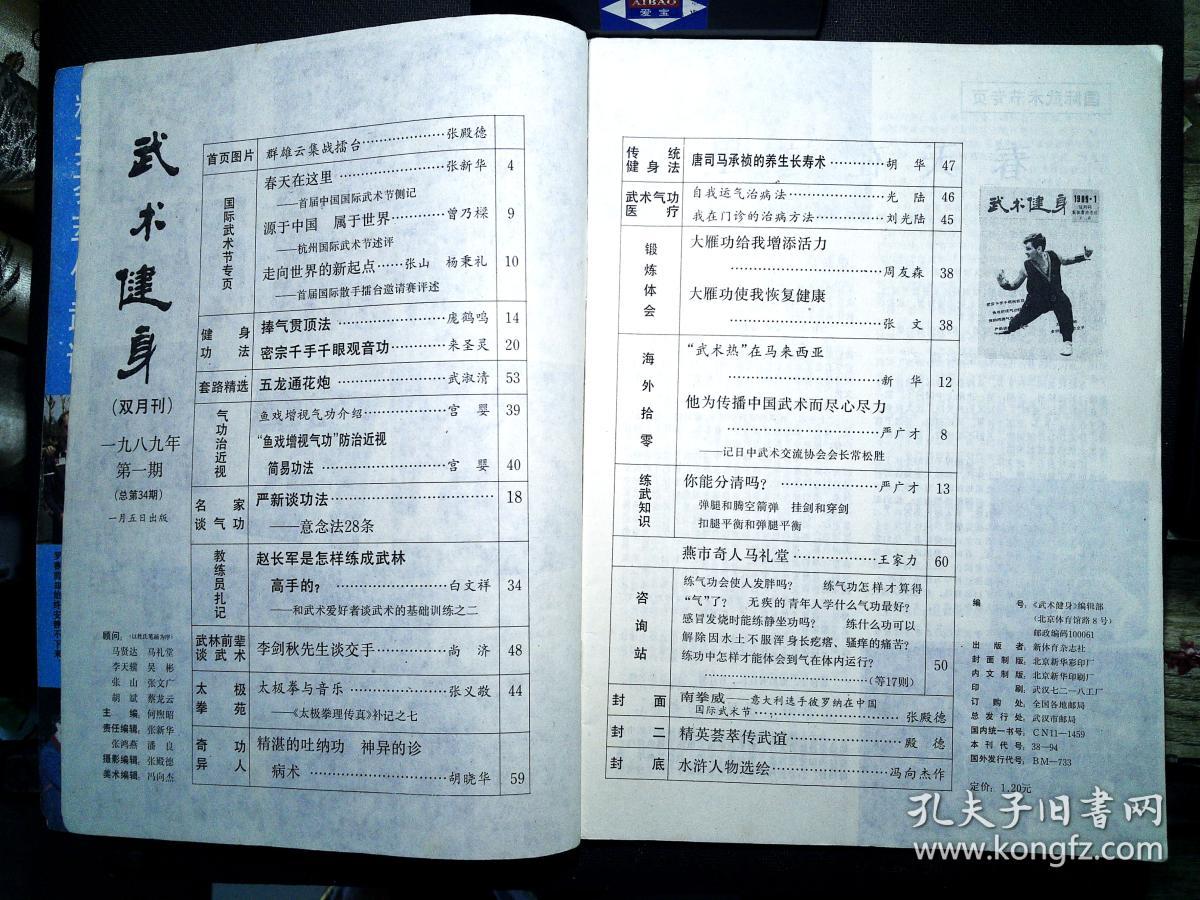 AIBAO
爱宝
武术健身
（双月刊）
一九八九年
第一期
（总第34期）
一月五日出版
顾问：（以姓氏笔画为序）
马贤达 马礼堂
李天骥 吴彬
张山 张文广
胡斌 蔡龙云
主编：何煦昭
责任编辑：张新华
张鸿燕 潘良
摄影编辑：张殿德
美术编辑：冯向杰
首页图片 群雄云集战擂台……张殿德
国际武术节专页
春天在这里……张新华 4
——首届中国国际武术节侧记
源于中国 属于世界……曾乃樑 9
——杭州国际武术节述评
走向世界的新起点……张山 杨秉礼 10
——首届国际散手擂台邀请赛评述
健身功法
捧气贯顶法……庞鹤鸣 14
密宗千手千眼观音功……来圣灵 20
套路精选 五龙通花炮……武淑清 53
气功治近视
鱼戏增视气功介绍……宫婴 39
“鱼戏增视气功”防治近视
简易功法……宫婴 40
名家谈气功
严新谈功法……18
——意念法28条
教练员扎记
赵长军是怎样练成武林
高手的？……白文祥 34
——和武术爱好者谈武术的基础训练之二
武林前辈谈武术 李剑秋先生谈交手……尚济 48
太极拳苑
太极拳与音乐……张义敬 44
——《太极拳理传真》补记之七
奇功异人
精湛的吐纳功 神异的诊
病术……胡晓华 59
传统健身法 唐司马承祯的养生长寿术……胡华 47
武术气功医疗
自我运气治病法……光陆 46
我在门诊的治病方法……刘光陆 45
锻炼体会
大雁功给我增添活力
……周友森 38
大雁功使我恢复健康
……张文 38
海外拾零
“武术热”在马来西亚
……新华 12
他为传播中国武术而尽心尽力
……严广才 8
——记日中武术交流协会会长常松胜
练武知识
你能分清吗？……严广才 13
弹腿和腾空箭弹 挂剑和穿剑
扣腿平衡和弹腿平衡
燕市奇人马礼堂……王家力 60
咨询站
练气功会使人发胖吗？ 练气功怎样才算得
“气”了？ 无疾的青年人学什么气功最好？
感冒发烧时能练静坐功吗？ 练什么功可以
解除因水土不服浑身长疙瘩、骚痒的痛苦？
练功中怎样才能体会到气在体内运行？
……（等17则） 50
封面 南拳威——意大利选手彼罗纳在中国
国际武术节……张殿德
封二 精英荟萃传武谊……殿德
封底 水浒人物选绘……冯向杰作
武术健身
1989·1
编者：《武术健身》编辑部
（北京体育馆路8号）
邮政编码100061
出版者：新体育杂志社
封面制版：北京新华彩印厂
内文制版：北京新华印刷厂
印刷：武汉七二一八工厂
订购处：全国各地邮局
总发行处：武汉市邮局
国内统一书号：CN11—1459
本刊代号：38—94
国外发行代号：BM—733
定价：1.20元
孔夫子旧书网
www.kongfz.com